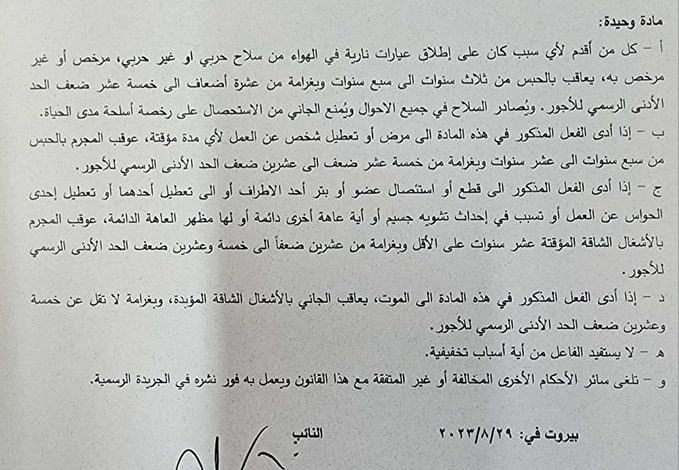 مادة وحيدة:
أ – كل من أقدم لأي سبب كان على إطلاق عيارات نارية في الهواء من سلاح حربي او غير حربي، مرخص أو غير
مرخص به، يعاقب بالحبس من ثلاث سنوات الى سبع سنوات وبغرامة من عشرة أضعاف الى خمسة عشر ضعف الحد
الأدنى الرسمي للأجور. ويُصادر السلاح في جميع الاحوال ويُمنع الجاني من الاستحصال على رخصة أسلحة مدى الحياة.
ب – إذا أدى الفعل المذكور في هذه المادة الى مرض أو تعطيل شخص عن العمل لأي مدة مؤقتة، عوقب المجرم بالحبس
من سبع سنوات الى عشر سنوات وبغرامة من خمسة عشر ضعف الى عشرين ضعف الحد الأدنى الرسمي للأجور.
ج – إذا أدى الفعل المذكور الى قطع أو استئصال عضو أو بتر أحد الاطراف أو الى تعطيل أحدهما أو تعطيل إحدى
الحواس عن العمل أو تسبب في إحداث تشويه جسيم أو أية عاهة أخرى دائمة أو لها مظهر العاهة الدائمة، عوقب المجرم
بالأشغال الشاقة المؤقتة عشر سنوات على الأقل وبغرامة من عشرين ضعفاً الى خمسة وعشرين ضعف الحد الأدنى الرسمي
للأجور.
د – إذا أدى الفعل المذكور في هذه المادة الى الموت، يعاقب الجاني بالأشغال الشاقة المؤبدة، وبغرامة لا تقل عن خمسة
وعشرين ضعف الحد الأدنى الرسمي للأجور.
ه – لا يستفيد الفاعل من أية أسباب تخفيفية.
و – تلغى سائر الأحكام الأخرى المخالفة أو غير المتفقة مع هذا القانون ويعمل به فور نشره في الجريدة الرسمية.
بيروت في: ٢٠٢٣/٨/٢٩ النائب